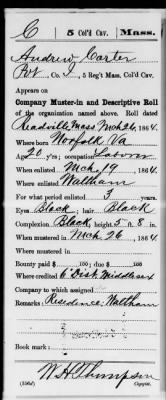 C 5 Col'd Cav. Mass.
Andrew Carter
Pvt, Co. I, 5 Reg't Mass. Col'd Cav.
Appears on
Company Muster-in and Descriptive Roll
of the organization named above. Roll dated
Readville Mass Mch 26, 1864.
Where born Norfolk Va
Age 20 y'rs; occupation Laborer
When enlisted Mch 19, 1864.
Where enlisted Waltham
For what period enlisted 3 years.
Eyes Black; hair Black
Complexion Black; height 5 ft. 8 in.
When mustered in Mch 26, 1864.
Where mustered in
Bounty paid $ 100; due $ 100
Where credited 6 Dist. Middlesex
Company to which assigned
Remarks: Residence: Waltham
Book mark:
W H Thompson
(356d) Copyist.